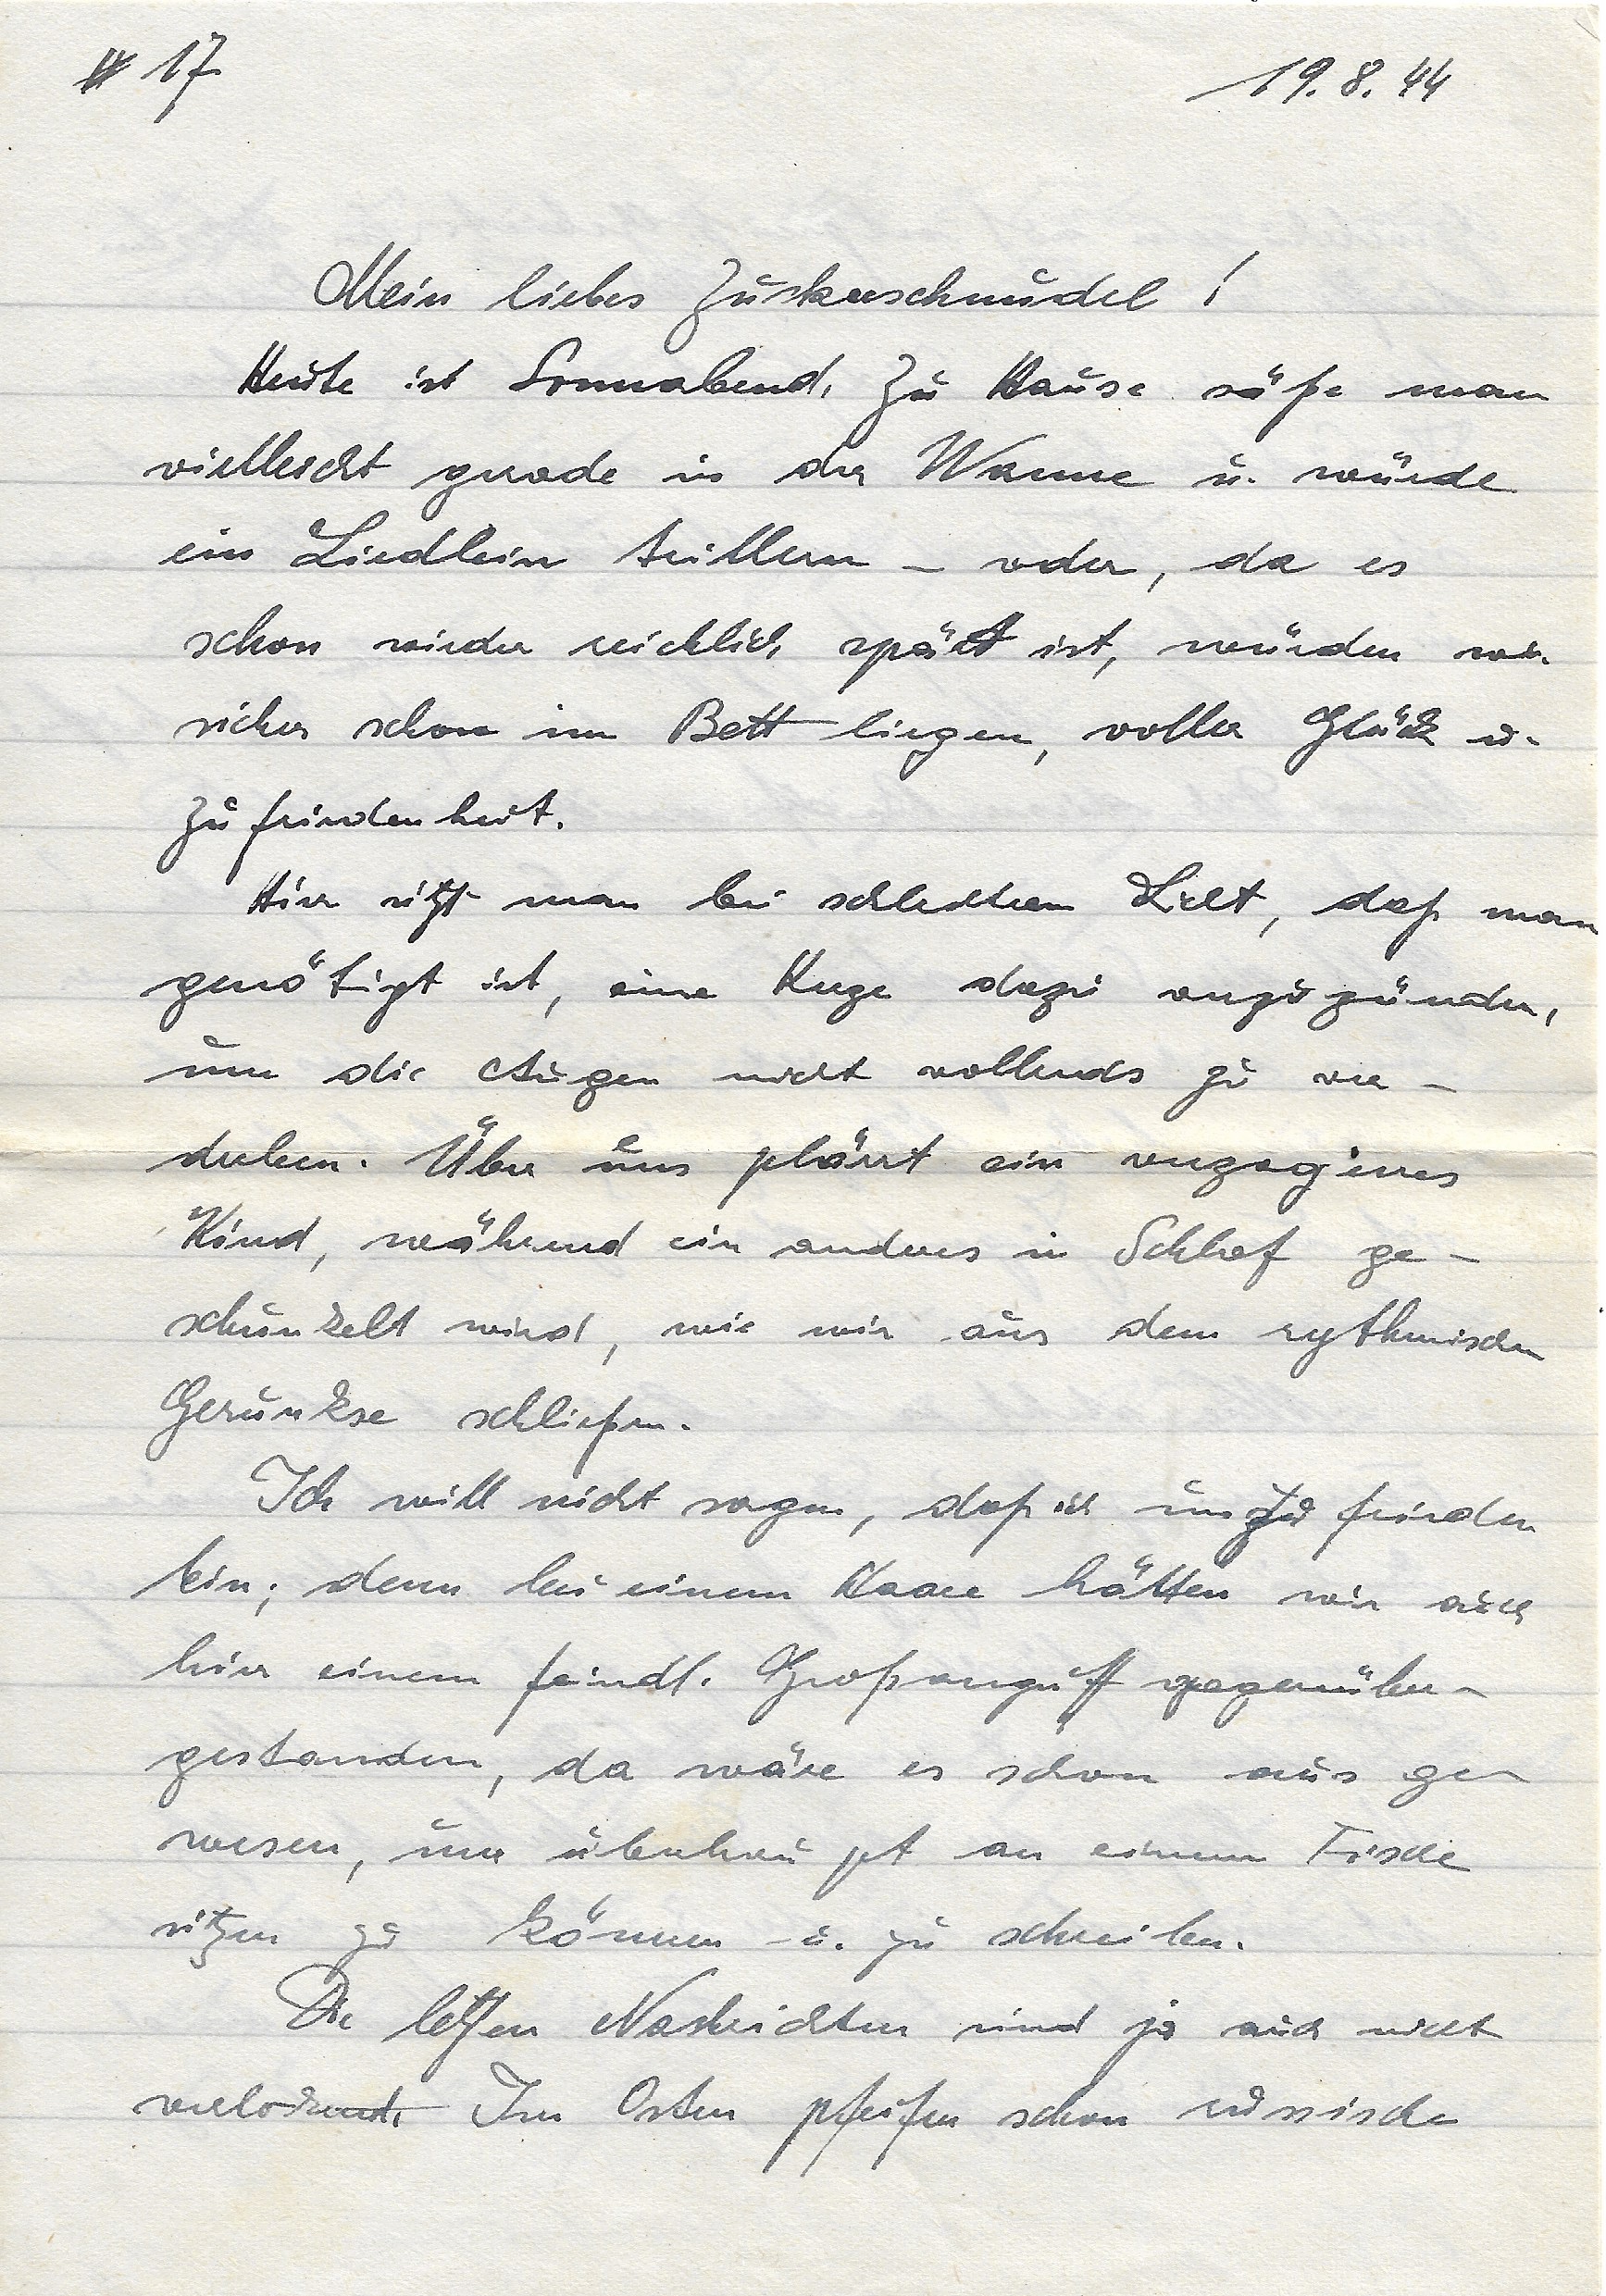 # 17 19.8.44
Mein liebes Zuckerschnudel!
Heute ist Sonnabend. Zu Hause säße man
vielleicht gerade in der Wanne u. würde
ein Liedlein trillern – oder, da es
schon wieder reichlich spät ist, würden wir
sicher schon im Bett liegen, voller Glück u.
Zufriedenheit.
Hier sitzt man bei schlechtem Licht, daß man
genötigt ist, eine Kerze dazu anzuzünden,
um die Augen nicht vollends zu ver-
derben. Über uns plärrt ein
Kind, während ein anderes in Schlaf ge-
schunkelt wird, wie wir aus dem rythmischen
Gerunkse schließen.
Ich will nicht sagen, daß ich unzufrieden
bin; denn bei einem Haare hätten wir auch
hier einem feindl. Großangriff gegenüber-
gestanden, da wäre es schon aus ge-
wesen, um überhaupt an einem Tische
sitzen zu können u. zu schreiben.
Die letzten Nachrichten sind ja auch nicht
verlockend. Im Osten pfeifen schon russische